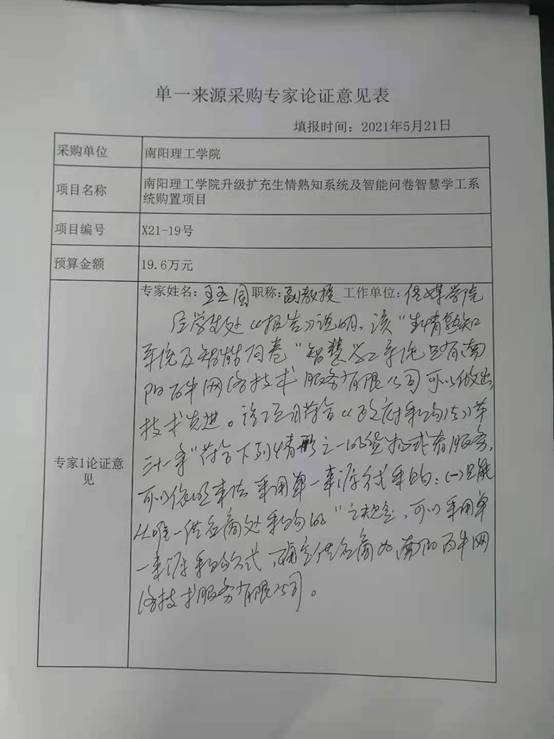 单一来源采购专家论证意见表
填报时间: 2021年5月21日
采购单位 南阳理工学院
项目名称 南阳理工学院升级扩充生情熟知系统及智能问卷智慧学工系
统购置项目
项目编号 X21-19号
预算金额 19.6万元
专家1论证意
见
专家姓名: 职称: 副教授 工作单位: 传媒学院
学生处《报告》说明, 该“生情熟知
系统及智能问卷”智慧学工系统只有南
阳 网络技术服务有限公司可以做出
技术先进。该项目符合《政府采购法》第
三十一条“符合下列情形之一的货物或者服务,
可以依照本法采用单一来源方式采购: (一)只能
从唯一供应商处采购的”之规定, 可以采用单
一来源采购方式, 确定供应商为南阳 网
络技术服务有限公司。